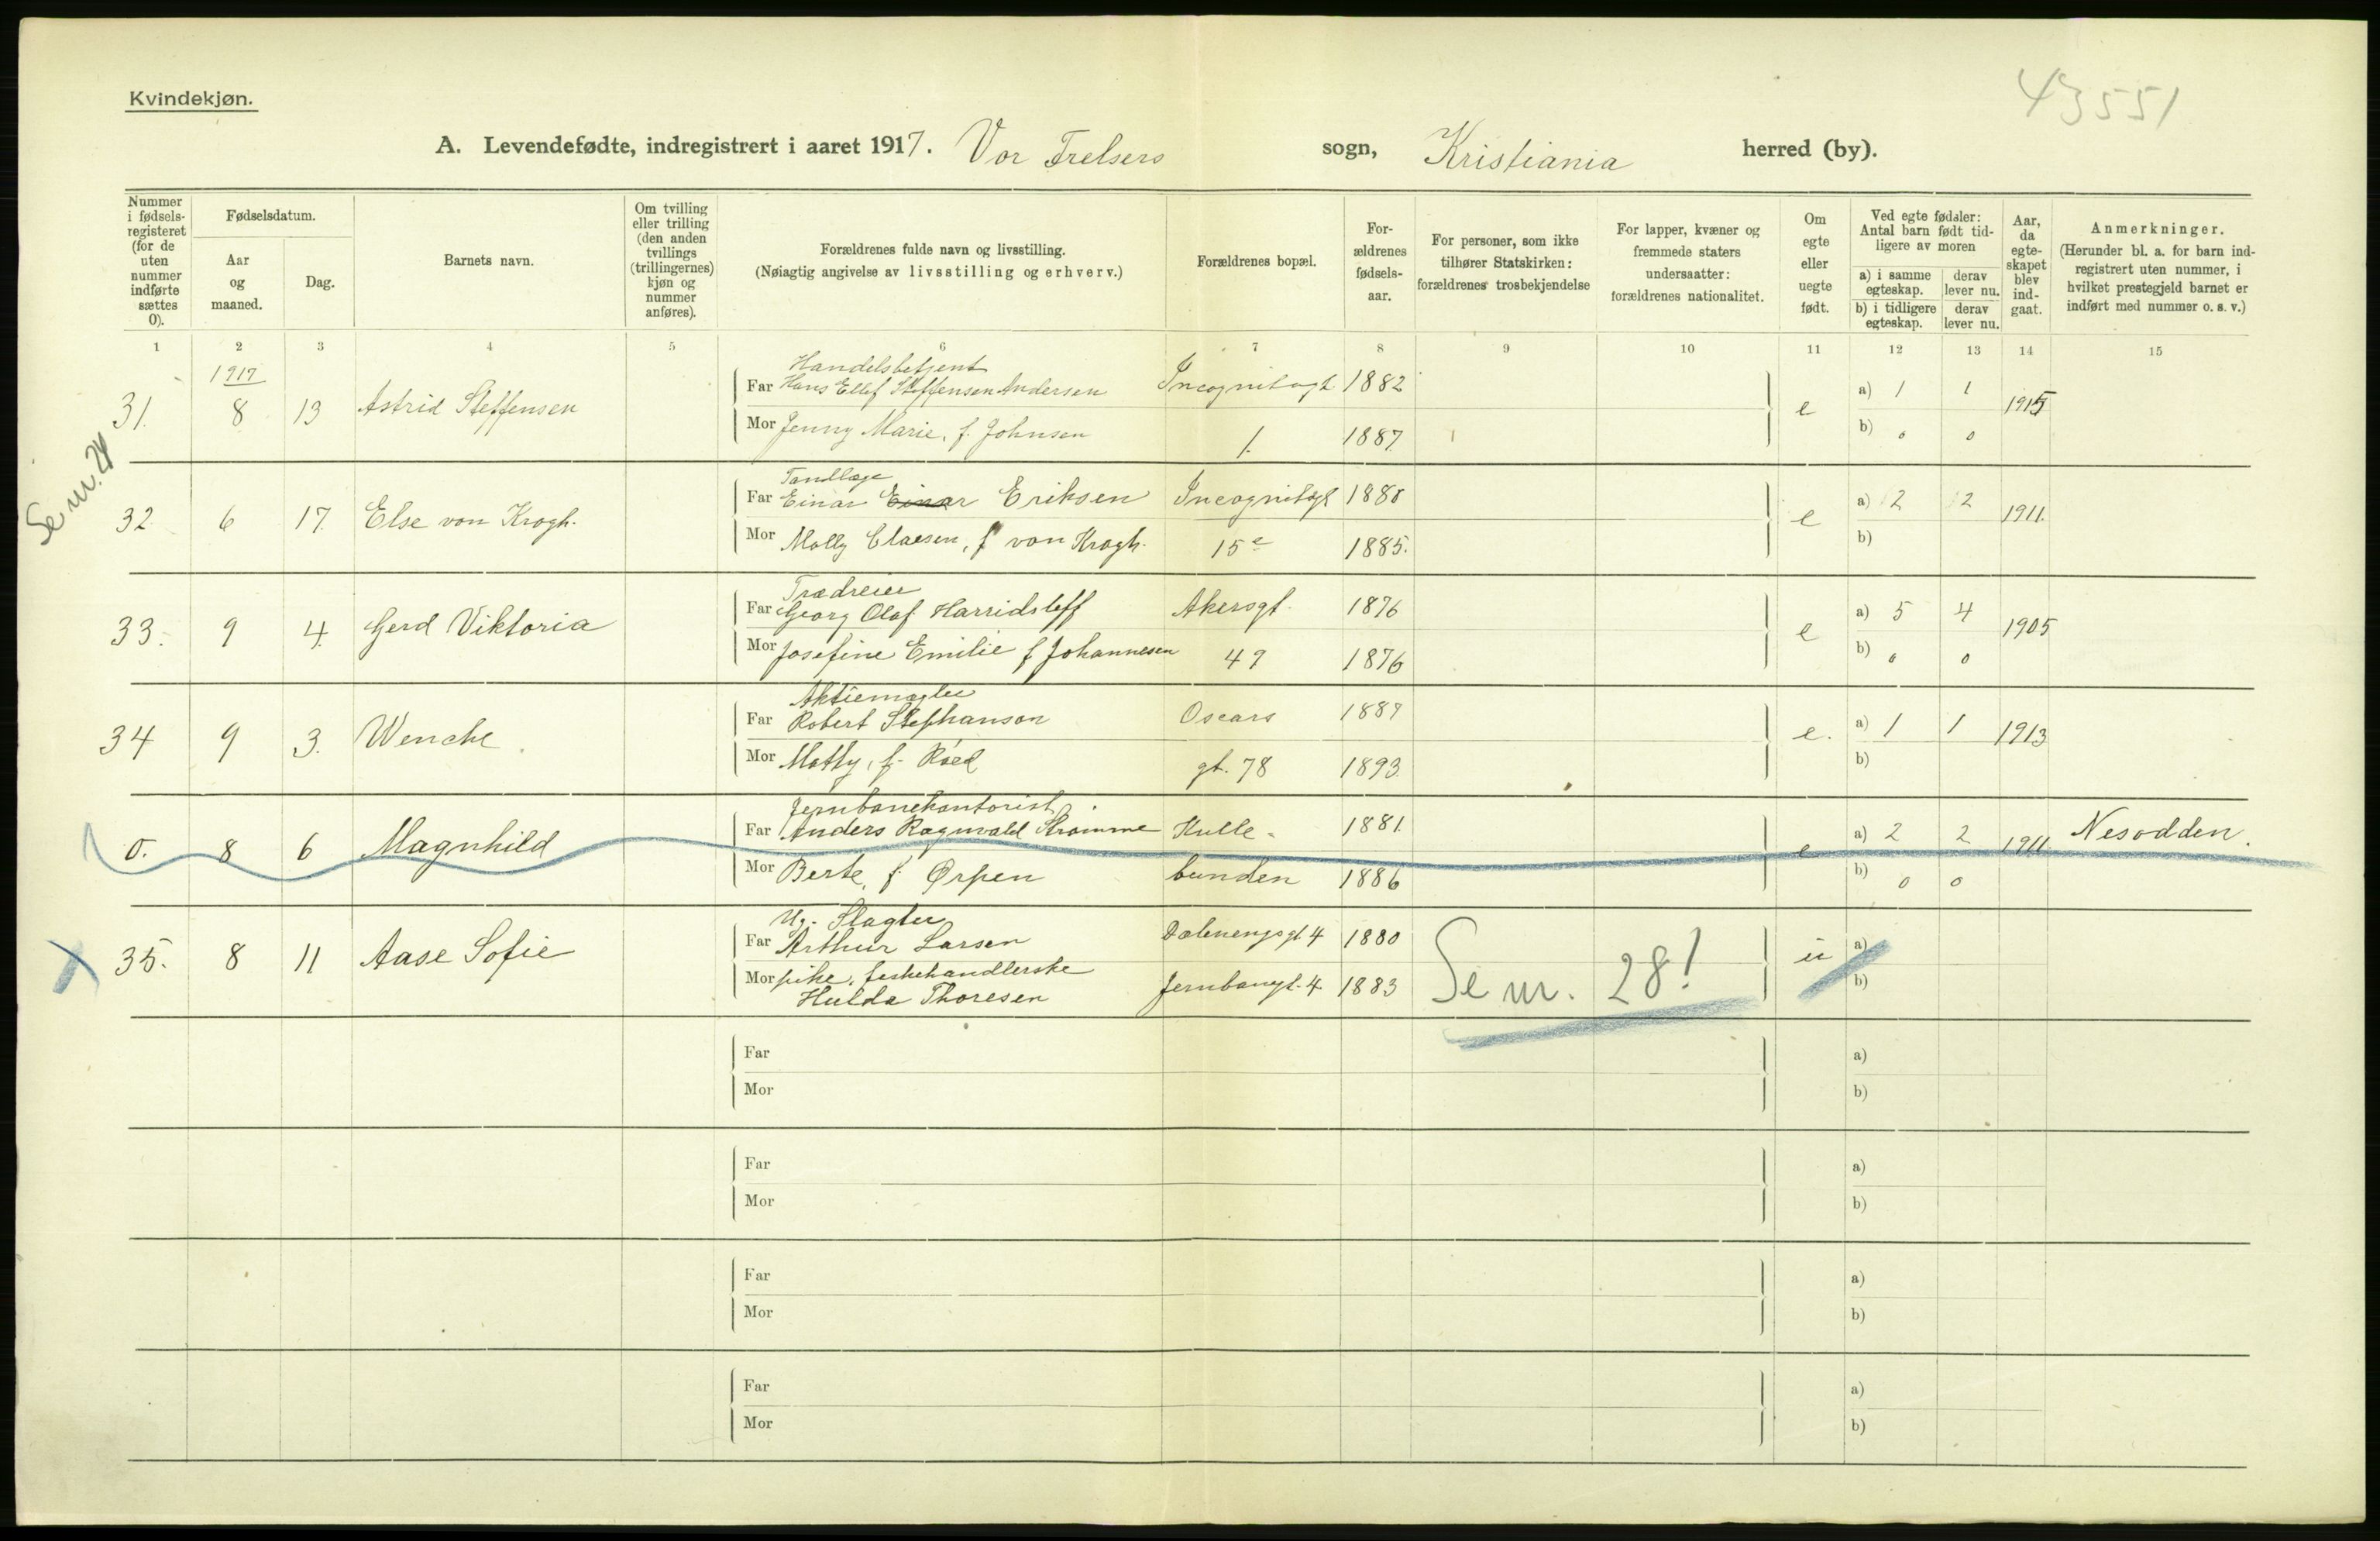 Kvindekjøn.
43551
A. Levendefødte, indregistrert i aaret 1917. Vor Frelsers sogn, Kristiania herred (by).
Nummer i fødsels-registeret (for de uten nummer indførte sættes 0).
Fødselsdatum.
Aar og maaned.
Dag.
Barnets navn.
Om tvilling eller trilling (den anden tvillings (trillingernes) kjøn og nummer anføres).
Forældrenes fulde navn og livsstilling.
(Nøiagtig angivelse av livsstilling og erhverv.)
Forældrenes bopæl.
For-ældrenes fødsels-aar.
For personer, som ikke tilhører Statskirken: forældrenes trosbekjendelse
For lapper, kvæner og fremmede staters undersaatter: forældrenes nationalitet.
Om egte eller uegte født.
Ved egte fødsler: Antal barn født tid-ligere av moren
a) i samme egteskap. derav lever nu.
b) i tidligere egteskap. derav lever nu.
Aar, da egte-skapet blev ind-gaat.
Anmerkninger.
(Herunder bl. a. for barn ind-registrert uten nummer, i hvilket prestegjeld barnet er indført med nummer o. s. v.)
1 2 3 4 5 6 7 8 9 10 11 12 13 14 15
1917
Handelsbetjent
31. 8 13 Astrid Steffensen Far Hans Ellef Steffensen Andersen Incognitogt 1882 e a) 1 1 1915
Mor Jenny Marie, f. Johnsen 1. 1887. b) 0 0
Se nr.
Tandlæge
32 6 17. Else von Krogh. Far Einar Einar Eriksen Incognitogt 1880 e a) 2 2 1911.
Mor Molly Claesen, f von Krogh. 15e 1885. b)
Trædreier
33. 9 4. Gerd Viktoria Far Georg Olaf Harridsleff Akersgt. 1876 e a) 5 4 1905
Mor Josefine Emilie f Johannesen 49 1876 b) 0 0
Aktiemægler
34 9 3. Wenche. Far Robert Stephanson Oscars 1887 e. a) 1 1 1913
Mor Mathy, f. Röed gt. 78 1893. b)
Jernbanekontorist
0. 8 6 Magnhild Far Anders Ragnvald Strømme Hulle- 1881. e a) 2 2 1911. Nesodden.
Mor Berte, f. Ørpen bunden 1886 b) 0 0
Ug. Slagter
35. 8 11 Aase Sofie Far Arthur Larsen Dælenengsgt. 4 1880 Se nr. 28! u a)
Mor pike, fiskehandlerske Jernbanegt. 4 1883 b)
Hulda Thoresen
Far a)
Mor b)
Far a)
Mor b)
Far a)
Mor b)
Far a)
Mor b)